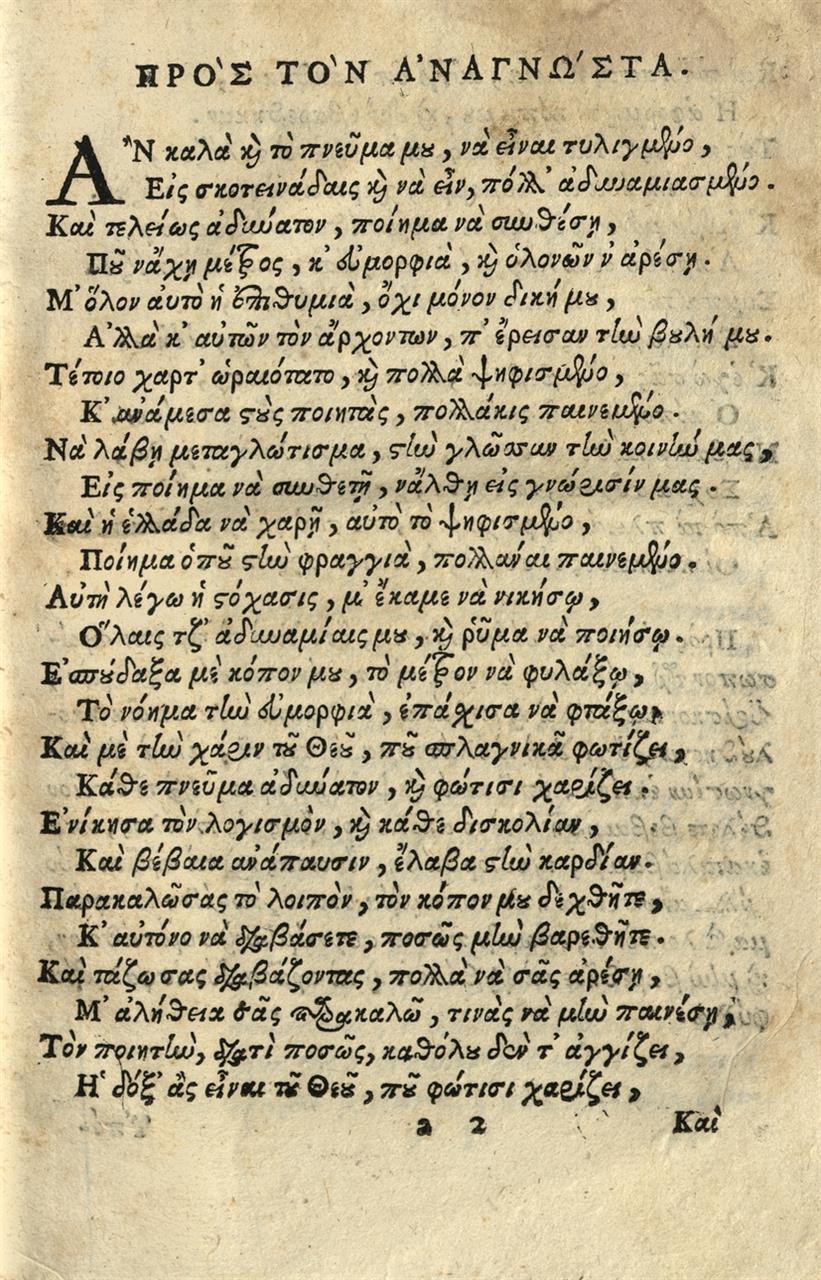 ΠΡΟ'Σ ΤΟ'Ν Α'ΝΑΓΝΩ'ΣΤΑ.
Α῍Ν καλὰ ϗ τὸ πνεῦμα μȣ, νὰ εἶναι τυλιγμένο,
Εἰς σκοτεινάδαις ϗ νὰ εἶν, πόλλ' ἀδυναμιασμένο.
Καὶ τελείως ἀδύνατον, ποίημα νὰ συνθέσῃ,
Ποῦ νἄχῃ μέτρος, κ' εὐμορφιὰ, ϗ ὁλονῶν ν' ἀρέσῃ.
Μ' ὅλον αὐτὸ ἡ ἐπιθυμιὰ, ὄχι μόνον δική μȣ,
Α'λλὰ κ' αὐτῶν τὸν ἄρχοντων, π' ἔρεισαν τὴν βȣλή μȣ.
Τέτοιο χαρτ' ὡραιότατο, ϗ πολλὰ ψηφισμένο,
Κ' ἀνάμεσα ϛοὺς ποιητὰς, πολλάκις παινεμένο.
Νὰ λάβῃ μεταγλώτισμα, ϛὴν γλῶσσαν τὴν κοινήν μας,
Εἰς ποίημα νὰ συνθετῇ, νἄλθῃ εἰς γνώρισίν μας.
Καὶ ἡ ἑλλάδα νὰ χαρῇ, αὐτὸ τὸ ψηφισμένο,
Ποίημα ὁποῦ ϛὴν φραγγιὰ, πολλάναι παινεμένο.
Αὐτὴ λέγω ἡ ϛόχασις, μ' ἔκαμε νὰ νικήσῳ,
Ὅλαις τζ' ἀδυναμίαις μȣ, ϗ ῥῦμα νὰ ποιήσῳ.
Ε'σπȣ́δαξα μὲ κόπον μȣ, τὸ μέτρον νὰ φυλάξῳ,
Τὸ νόημα τὴν εὐμορφιὰ, ἐπάχισα νὰ φτιάξῳ,
Καὶ μὲ τὴν χάριν τοῦ Θεοῦ, ποῦ σπλαγνικᾶ φωτίζει,
Κάθε πνεῦμα ἀδύνατον, ϗ φώτισι χαρίζει.
Ε'νίκησα τὸν λογισμὸν, ϗ κάθε δισκολίαν,
Καὶ βέβαια ἀνάπαυσιν, ἔλαβα ϛὴν καρδίαν.
Παρακαλῶσας τὸ λοιπὸν, τὸν κόπον μȣ δεχθῆτε,
Κ' αὐτόνο νὰ διαβάσετε, ποσῶς μὴν βαρεθῆτε.
Καὶ τάζωσας διαβάζοντας, πολλὰ νὰ σᾶς ἀρέσῃ,
Μ' ἀλήθεια σᾶς παρακαλῶ, τινὰς νὰ μὴν παινέσῃ,
Τὸν ποιητὴν, διατὶ ποσῶς, καθόλȣ δὲν τ' ἀγγίζει,
Η' δόξ' ἂς εἶναι τοῦ Θεοῦ, ποῦ φώτισι χαρίζει,
a 2 Καὶ